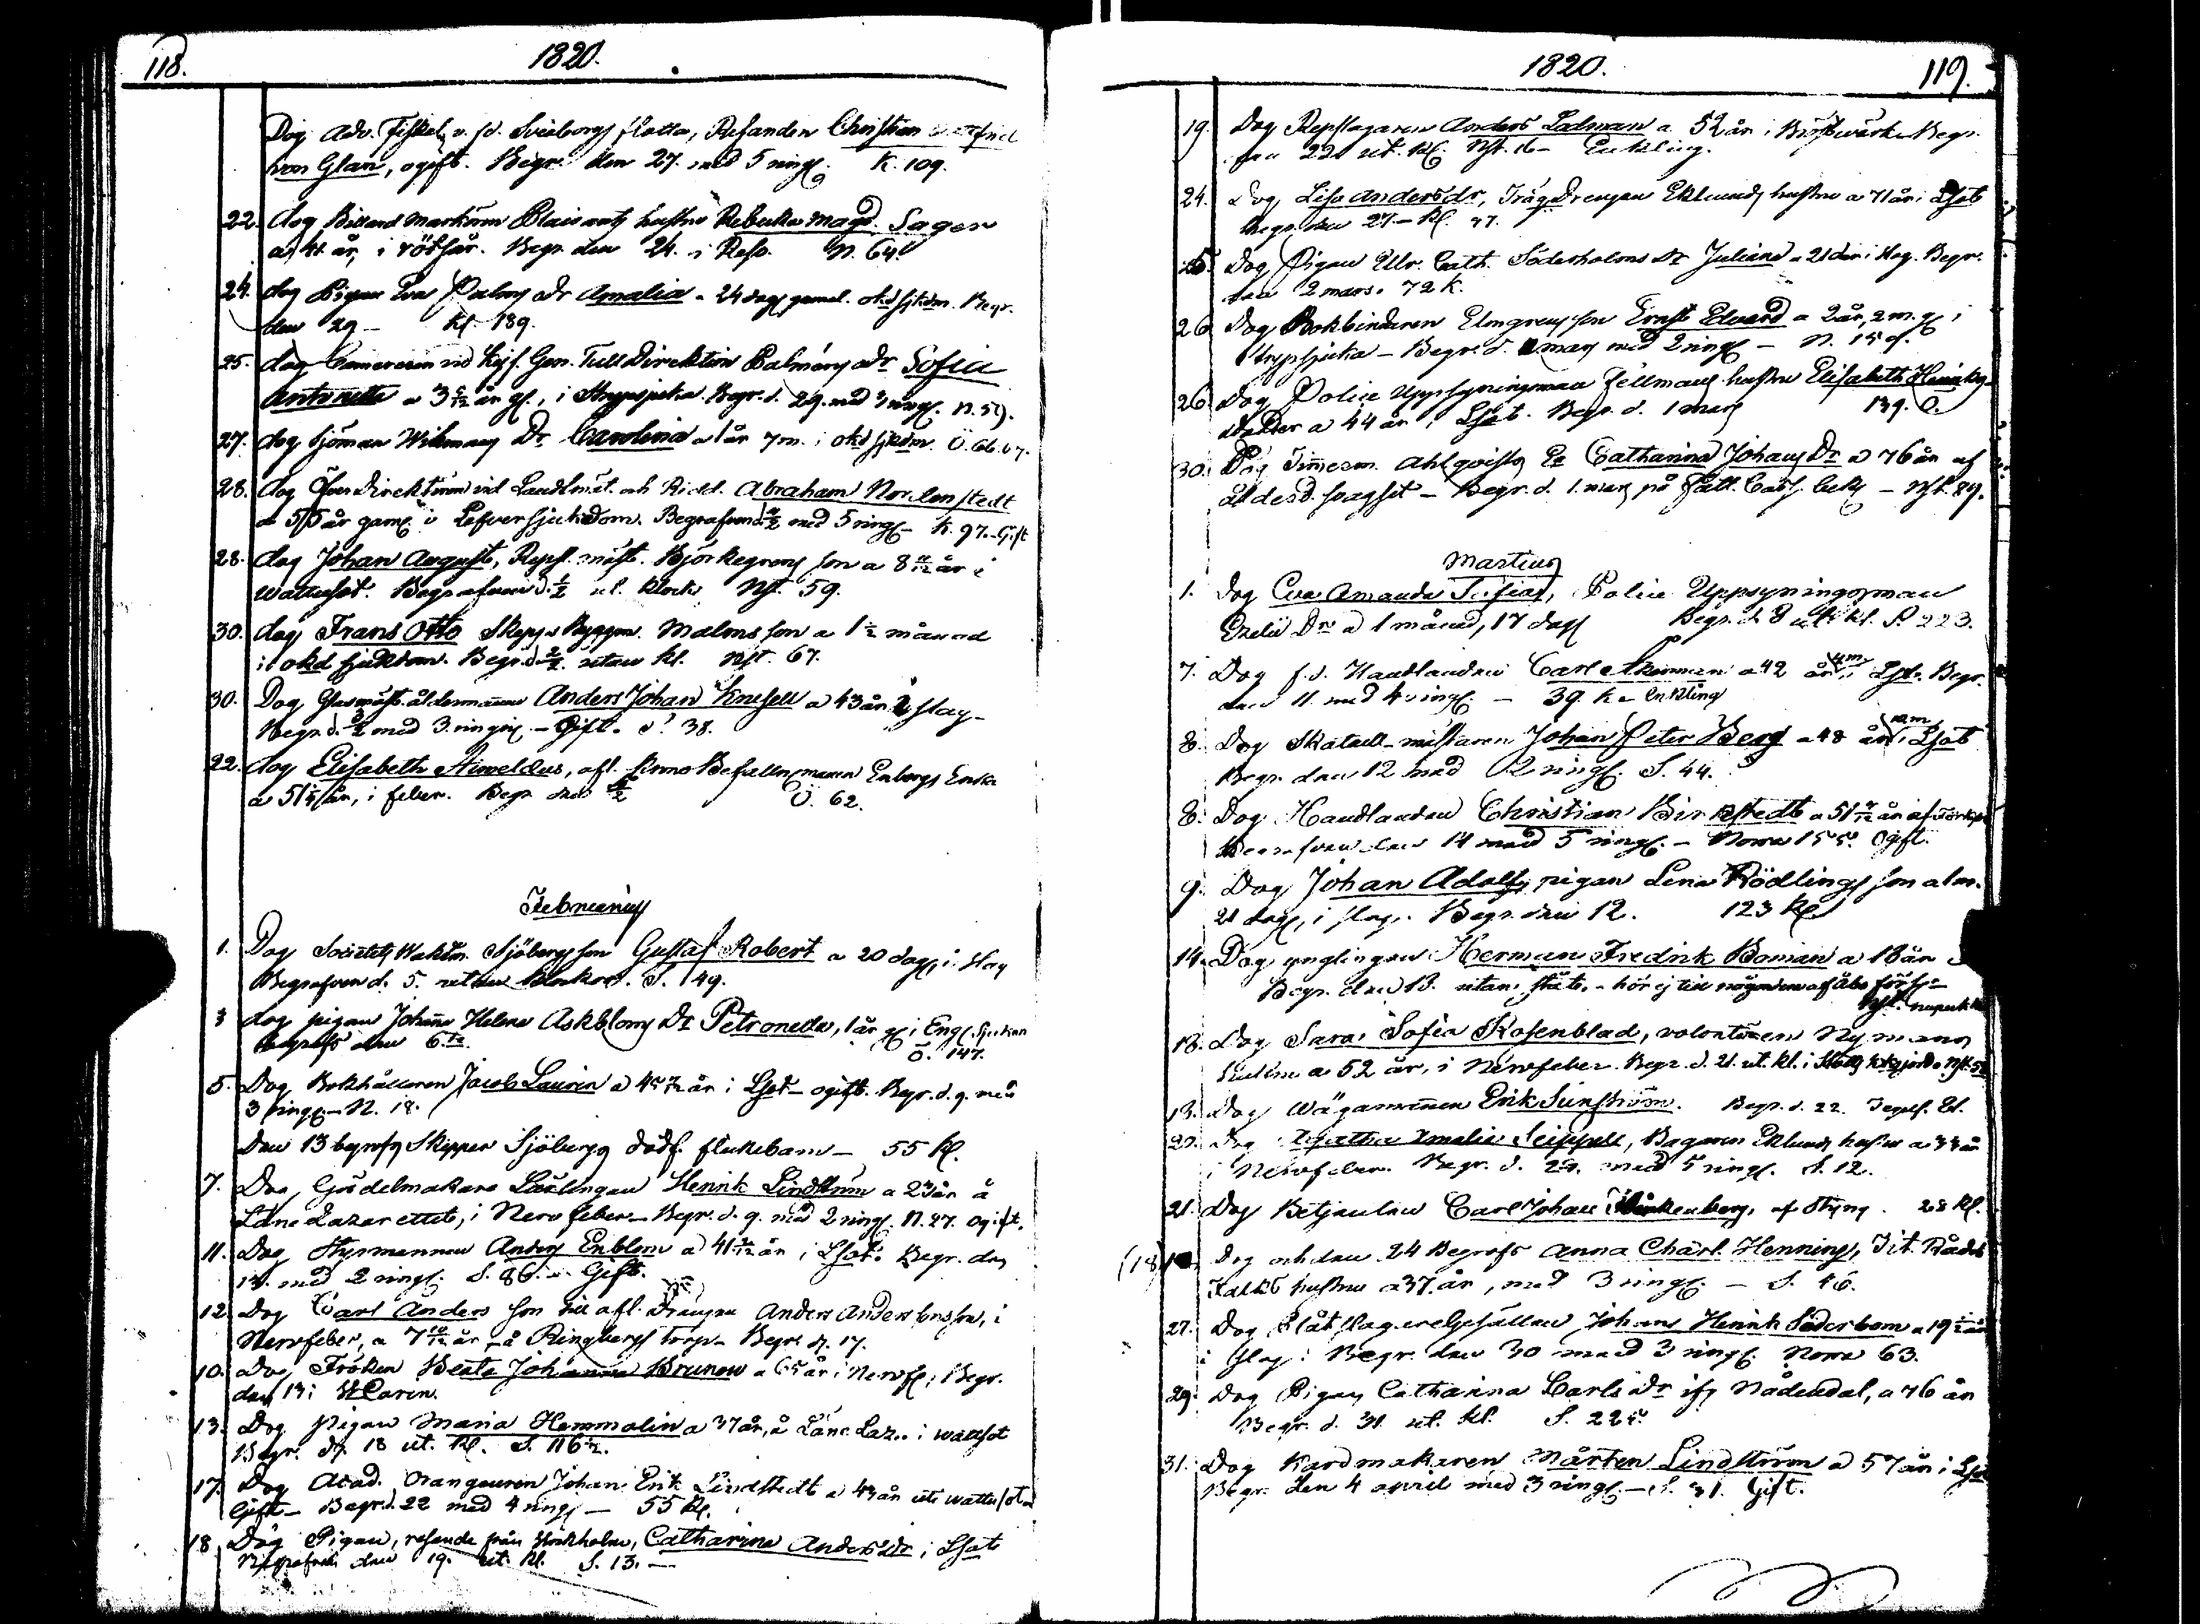 118.
1820.
Dog Adv. Fiskal v. fd. Sveaborgs flotta, Resanden Christian
von Glan, ogift. Begr. den 27. med 5 ringg. K. 109.
22. dog Billard Markören hustru Rebecka Magd. Sager
a 41 år, i rötfär. Begr. den 24. i Reso. N. 64.
24. dog Pigan Eva Palms dr Amalia a 24 dag. gamal. okd sjkdm. Begr.
den 29 - Kl. 189.
25. dog Camereren vid Kejs. Gen. Tull Direktion Palmérs dr Sofia
Antonetta a 3 5/12 år gl., i Strypsjuka. Begr. d. 29. med 3 ringg. N. 59.
27. dog Sjöman Wikmans Dr Carolina a 1 år 7 m. i okd sjkdm. Ö. 66. 67.
28. dog Öfver Direktören vid Landtmät. och Ridd. Abraham Nordenstedt
a 55 år gam. i Lefversjukdom. Begrafven d. med 5 ringg. K. 97. Gift
28. dog Johan August, Repsl. mäst. Björkegrens son a 8 år i
Wattusot. Begrafven d. ut. klock. Nst. 59.
30. dog Frans Otto Skepps Byggm. Malms son a 1 1/2 månad
i okd sjukdom. Begr. d. utan kl. Nst. 67.
30. Dog Glasmäst. åldermannen Anders Johan Knesell a 43 år i slag -
Begr. d. med 3 ringg. - Gift. S. 38.
22. dog Elisabeth Arweldus, afl. KronoBefallningsmannen Enbergs Enka
a 51 år, i feber. Begr. den Ö. 62.
Februarius
1. Dog Societets Waktm. Sjöbergs son Gustaf Robert a 20 dag, i slag
Begrafven d. 5. utan klockor. S. 149.
3 dog pigan Johanna Helena Askbloms Dr Petronella, 1 år gl i Eng. Sjukan
begrofs den 6te. Ö. 147.
5. Dog Bokhållaren Jacob Laurin a 45 år i Lsot - ogift. Begr. d. 9. med
3 ringg. - N. 18.
Den 13 begrofs Skeppar Sjöbergs dödf. flickebarn - 55 Kl.
7. Dog Gördelmakare Lärlingen Henrik Lindström a 23 år å
Läne Lazarettet, i Nervfeber. - Begr. d. 9. med 2 ringg. N. 27. ogift.
11. Dog Styrmannen Anders Enblom a 41 år i Lsot. Begr. den
14. med 2 ringg. S. 86. - Gift.
12. Dog Carl Anders son till afl. Drängen Anders Andersonsson, i
Nervfeber, a 7 10/12 år, å Ringbergs torp. Begr. d. 17.
10. Dog Fröken Beata Johanna Brunow a 65 år i Nervf, Begr.
den 13 i St Caren.
13. Dog pigan Maria Hemmalin a 37 år, å Läne Laz. i wattsot
Begr. d. 18 ut. Kl. S. 116 1/2.
17. Dog Acad. Orangeuren Johan Erik Lindstedt a 43 år uti wattusot
Gift - Begr. d. 22 med 4 ringg - 55 Kl.
18 Dog Pigan, resande från Stockholm, Catharina Andersdr i Lsot
Begrafven den 19. ut. Kl. S. 13. -
1820.
119.
19. Dog Repslagaren Anders Lalman a 52 år i Bröstwärk. Begr.
den 22 ut. Kl. Nst. 16 - Enkling.
24. Dog Lisa Andersdr, Träg Drengen Eklunds hustru a 71 år i Lsot
Begr. den 27 - Kl. 37.
25. Dog Pigan Ulr. Cath. Söderholms Dr Juliana a 21 dar i slag. Begr.
den 2 mars. 72 K.
26. Dog Bokbindaren Elmgrens son Ernst Edvard a 2 år, 2 m. g i
Strypsjuka - Begr. d. mars med 2 ringg - N. 15.
26. Dog Police Uppsyningsman Fellmans hustru Elisabeth Henriks
Dotter a 44 år i Lsot. Begr. d. 1 mars 139. Ö.
30. Dog Timerm. Ahlqvists Ea Catharina Johans Dr a 76 år af
ålderd. svaghet - Begr. d. 1. mars på Fatt. Cass. bek. - Nst. 89.
Martius
1. Dog Eva Amanda Sofia, Police Uppsyningsman
Ezelii Dr a 1 månad, 17 dag Begr. d. 8 ut. kl. S. 223.
7. Dog f.d. Handlanden Carl Åkerman a 42 år 4 m. i Lsot. Begr.
den 11. med 4 ringg. - 39. K - enkling
8. Dog Skatull-mästaren Johan Peter Berg a 48 år i Lsot
Begr. den 12 med 2 ringg. S. 44.
8. Dog Handlanden Christian Birkstedt a 51 år af
Begrafven den 14 med 5 ringg. - Norra 155. Ogift.
9. Dog Johan Adolf, pigan Lena Rödlings son a 1 m.
21 dag, i slag. Begr. den 12. 123 Kl
14. Dog ynglingen Herman Fredrik Boman a 18 år
Begr. den 18. utan ståt. - hör ej till någondera af Åbo förs:
18. Dog Sara Sofia Rosenblad, volontären Nymans
hustru a 52 år, i Nervfeber. Begr. d. 21. ut. kl. i Slotts kkgård. Nst. 52
13. Dog Wägaremannen Erik Sunström. Begr. d. 22.
20. Dog Agatha Amalia Seippell, Bagaren Eklunds hustru a 33 år
i Nervfeber. Begr. d. 29. med 5 ringg. S. 12.
21. Dog Betjenten Carl Johan Munkenberg, af Styng. 28 Kl.
(18) Dog och den 24 Begrofs Anna Charl. Henning, Tit. Rådet
Falcks hustru a 37 år, med 3 ringg - S. 46.
27. Dog Plåtslagaregesällen Johan Henrik Söderbom a 19 1/2 år
i slag: Begr. den 30 med 3 ringg. Norra 63.
29. Dog Pigan Catharina Carls Dr ifr Nådendal, a 76 år
Begr. d. 31. ut. Kl. S. 225.
31. Dog Kardmakaren Mårten Lindström a 57 år i Lsot
Begr. den 4 april med 3 ringg - S. 31. Gift.